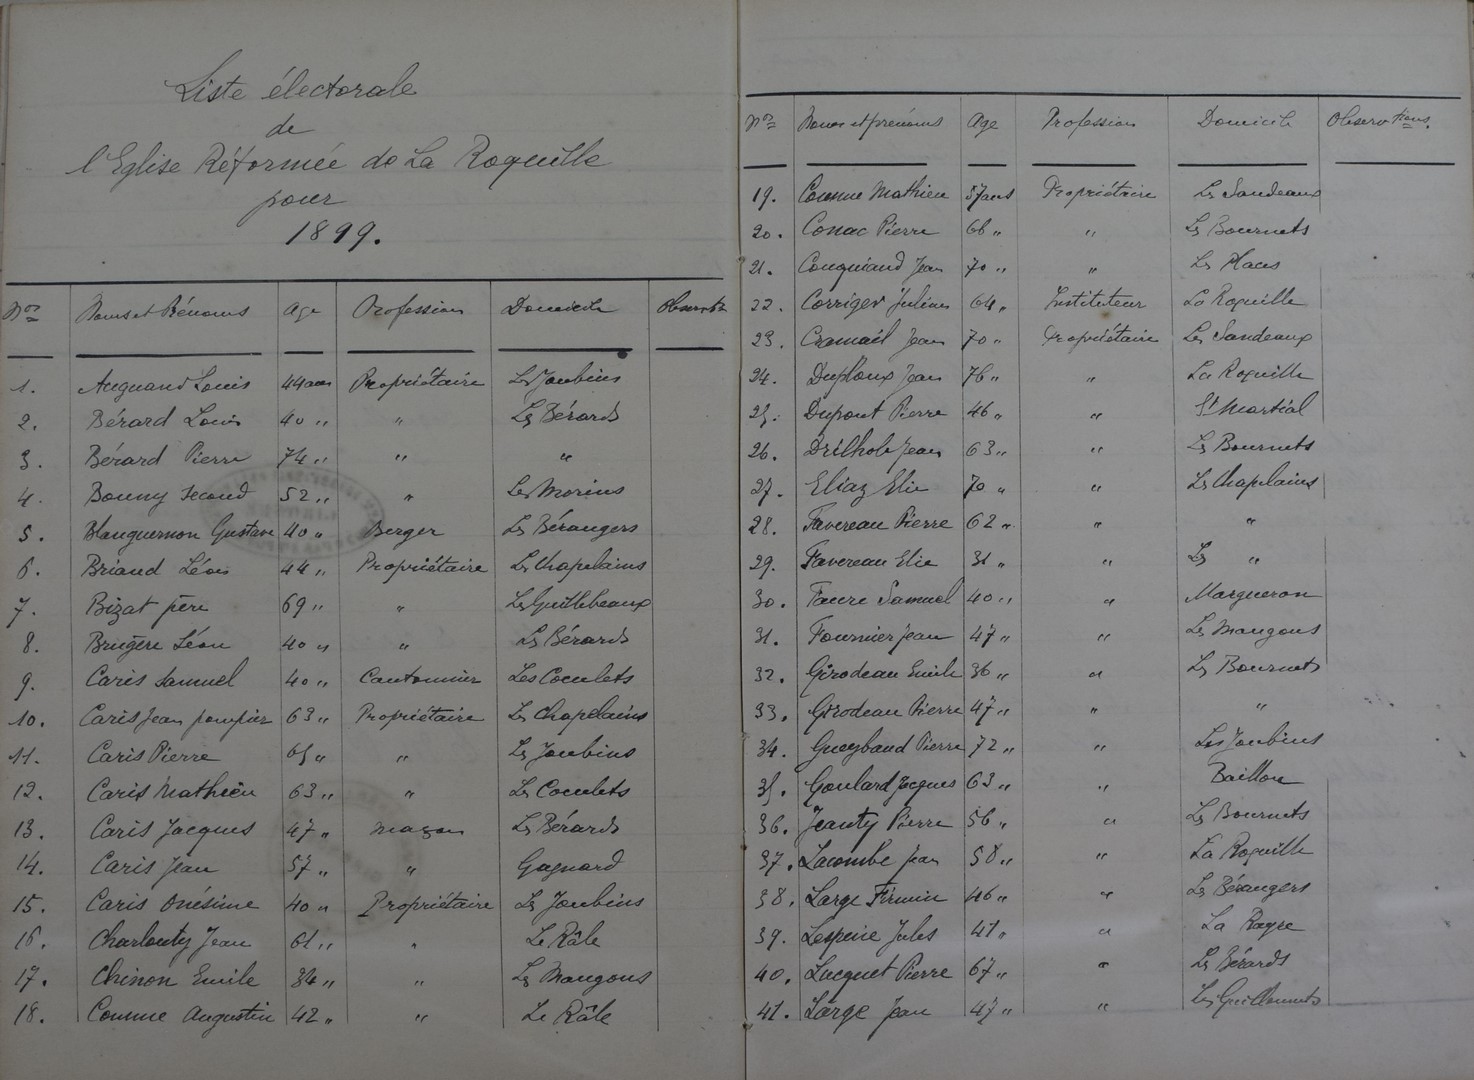 Liste électorale
de
l'Eglise Réformée de La Roquille
pour
1899.
Nos Noms et Prénoms Age Profession Domicile Observ
1. Auguand Louis 44 ans Propriétaire Les Joubins
2. Bérard Louis 40 " " Les Bérards
3. Bérard Pierre 74 " " "
4. Bonny Second 52 " " Les Morins
5. Blanguernon Gustave 40 " Berger Les Bérangers
6. Briand Léon 44 " Propriétaire Les Chapelains
7. Bizat père 69 " " Les Guillebeaux
8. Brugère Léon 40 " " Les Bérards
9. Caris Samuel 40 " Cantonnier Les Coculets
10. Caris Jean pompier 63 " Propriétaire Les Chapelains
11. Caris Pierre 65 " " Les Joubins
12. Caris Mathieu 63 " " Les Coculets
13. Caris Jacques 47 " maçon Les Bérards
14. Caris Jean 57 " " Gagnard
15. Caris Onésime 40 " Propriétaire Les Joubins
16. Charlouty Jean 61 " " Le Râle
17. Chinon Emile 34 " " Les Maugons
18. Comme Augustin 42 " " Le Râle
Nos Noms et prénoms Age Profession Domicile Observations.
19. Comme Mathieu 57 ans Propriétaire Les Sandeaux
20. Conac Pierre 66 " " Les Bournets
21. Couguiaud Jean 70 " " Les Places
22. Corriger Julien 64 " Instituteur La Roquille
23. Cramail Jean 70 " Propriétaire Les Sandeaux
24. Duploux Jean 76 " " La Roquille
25. Dupont Pierre 46 " " St Martial
26. Drilhole Jean 63 " " Les Bournets
27. Eliaz Elie 70 " " Les Chapelains
28. Favereau Pierre 62 " " "
29. Favereau Elie 31 " " Les "
30. Faure Samuel 40 " " Margueron
31. Fournier Jean 47 " " Les Maugons
32. Girodeau Emile 36 " " Les Bournets
33. Girodeau Pierre 47 " " "
34. Gueybaud Pierre 72 " " Les Joubins
35. Goulard Jacques 63 " " Baillou
36. Jeanty Pierre 56 " " Les Bournets
37. Lacombe Jean 58 " " La Roquille
38. Large Firmin 46 " " Les Bérangers
39. Lespine Jules 41 " " La Rayre
40. Lucquet Pierre 67 " " Les Bérards
41. Large Jean 47 " " Les Guillonnets